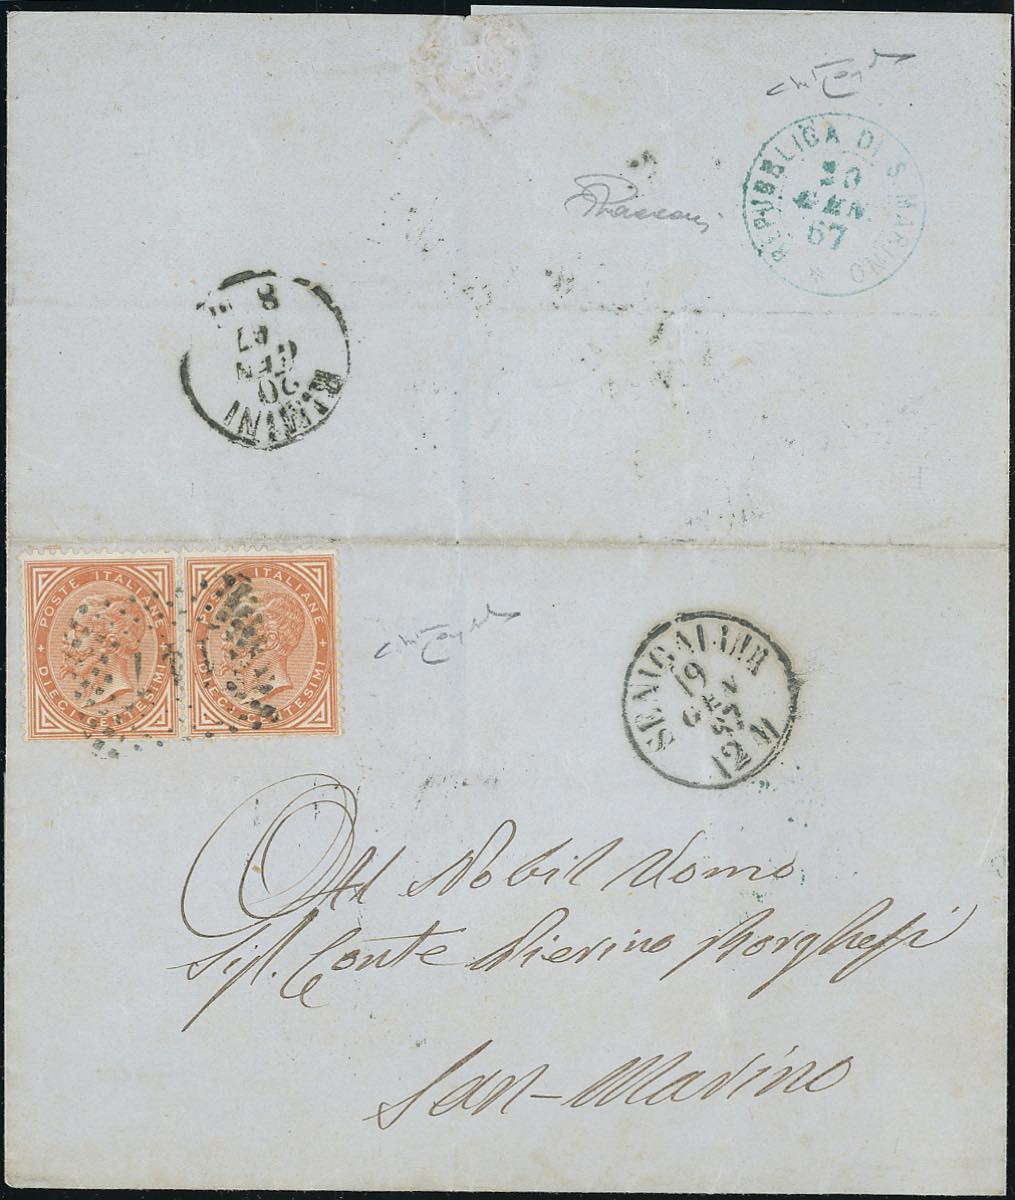 REPUBBLICA DI S. MARINO
GEN
67
RIMINI
20
GEN
67
8
POSTE ITALIANE
DIECI CENTESIMI
POSTE ITALIANE
DIECI CENTESIMI
19
GEN
67
12 M
Al Nobil Uomo
Sig. Conte Pierino Borghesi
San-Marino